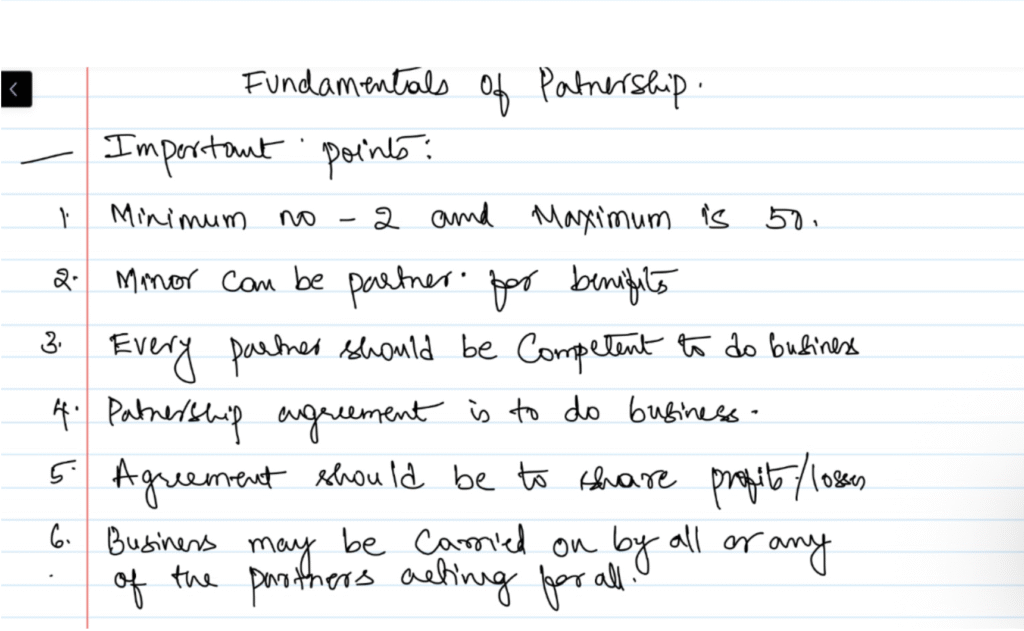 Fundamentals of Patnership.
Important points:
1. Minimum no - 2 and Maximum is 50.
2. Minor can be partner. for benifits
3. Every partner should be Competent to do business
4. Patnership agreement is to do business.
5. Agreement should be to share profits/losses
6. Business may be Carried on by all or any
of the partners acting for all.